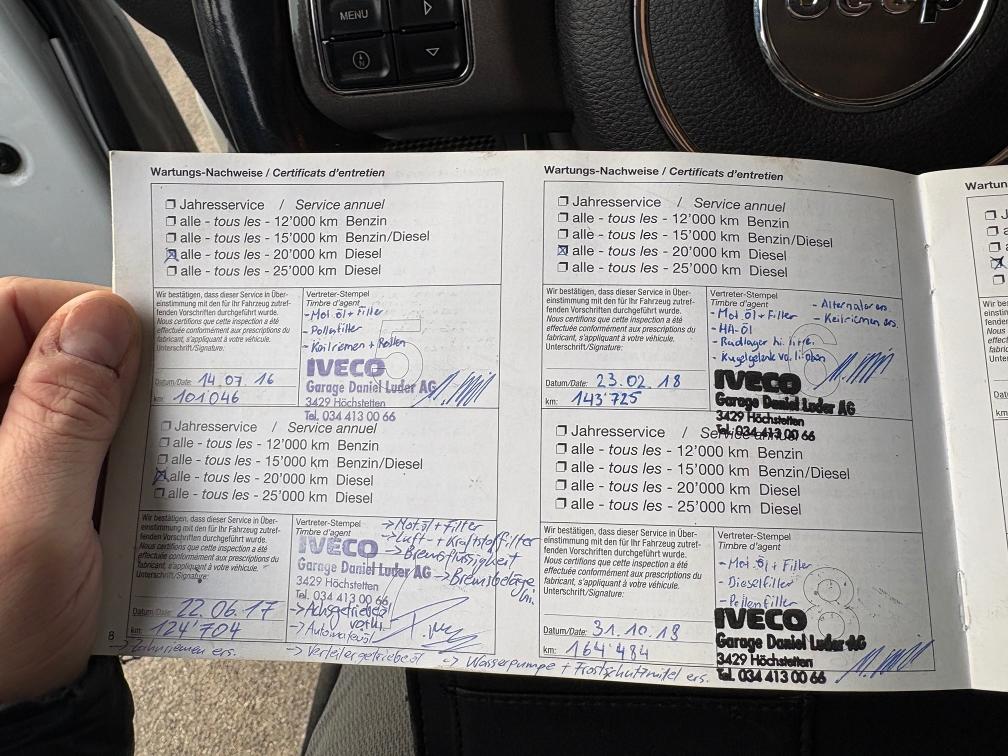 MENU
Jeep
Wartungs-Nachweise / Certificats d'entretien
❒ Jahresservice / Service annuel
❒ alle - tous les - 12'000 km Benzin
❒ alle - tous les - 15'000 km Benzin/Diesel
☒ alle - tous les - 20'000 km Diesel
❒ alle - tous les - 25'000 km Diesel
Wir bestätigen, dass dieser Service in Über-
einstimmung mit den für Ihr Fahrzeug zutref-
fenden Vorschriften durchgeführt wurde.
Nous certifions que cette inspection a été
effectuée conformément aux prescriptions du
fabricant, s'appliquant à votre véhicule.
Unterschrift/Signature:
Datum/Date: 14.07.16
km: 101'046
Vertreter-Stempel
Timbre d'agent
- Mot.öl + Filter
- Pollenfilter
- Keilriemen + Rollen
5
IVECO
Garage Daniel Luder AG
3429 Höchstetten
Tel. 034 413 00 66
❒ Jahresservice / Service annuel
❒ alle - tous les - 12'000 km Benzin
❒ alle - tous les - 15'000 km Benzin/Diesel
☒ alle - tous les - 20'000 km Diesel
❒ alle - tous les - 25'000 km Diesel
Wir bestätigen, dass dieser Service in Über-
einstimmung mit den für Ihr Fahrzeug zutref-
fenden Vorschriften durchgeführt wurde.
Nous certifions que cette inspection a été
effectuée conformément aux prescriptions du
fabricant, s'appliquant à votre véhicule.
Unterschrift/Signature:
Datum/Date: 22.06.17
km: 124'704
Vertreter-Stempel
Timbre d'agent
→ Mot.öl + Filter
→ Luft- + Kraftstoffilter
→ Bremsflüssigkeit
→ Bremsbeläge
IVECO
Garage Daniel Luder AG
3429 Höchstetten
Tel. 034 413 00 66
→ Achsgetriebeöl
→ Automatenöl
8
→ Zahnriemen ers. → Verteilergetriebeöl → Wasserpumpe + Frostschutzmittel ers.
Wartungs-Nachweise / Certificats d'entretien
❒ Jahresservice / Service annuel
❒ alle - tous les - 12'000 km Benzin
❒ alle - tous les - 15'000 km Benzin/Diesel
☒ alle - tous les - 20'000 km Diesel
❒ alle - tous les - 25'000 km Diesel
Wir bestätigen, dass dieser Service in Über-
einstimmung mit den für Ihr Fahrzeug zutref-
fenden Vorschriften durchgeführt wurde.
Nous certifions que cette inspection a été
effectuée conformément aux prescriptions du
fabricant, s'appliquant à votre véhicule.
Unterschrift/Signature:
Datum/Date: 23.02.18
km: 143'725
Vertreter-Stempel
Timbre d'agent
- Mot.öl + Filter
- HA-öl
- Radlager hi. li + re.
- Kugelgelenk vo. li oben
- Alternator ers.
- Keilriemen ers.
6
IVECO
Garage Daniel Luder AG
3429 Höchstetten
Tel. 034 413 00 66
❒ Jahresservice / Service annuel
❒ alle - tous les - 12'000 km Benzin
❒ alle - tous les - 15'000 km Benzin/Diesel
❒ alle - tous les - 20'000 km Diesel
❒ alle - tous les - 25'000 km Diesel
Wir bestätigen, dass dieser Service in Über-
einstimmung mit den für Ihr Fahrzeug zutref-
fenden Vorschriften durchgeführt wurde.
Nous certifions que cette inspection a été
effectuée conformément aux prescriptions du
fabricant, s'appliquant à votre véhicule.
Unterschrift/Signature:
Datum/Date: 31.10.18
km: 164'484
Vertreter-Stempel
Timbre d'agent
- Mot.öl + Filter
- Dieselfilter
- Pollenfilter
8
IVECO
Garage Daniel Luder AG
3429 Höchstetten
Tel. 034 413 00 66